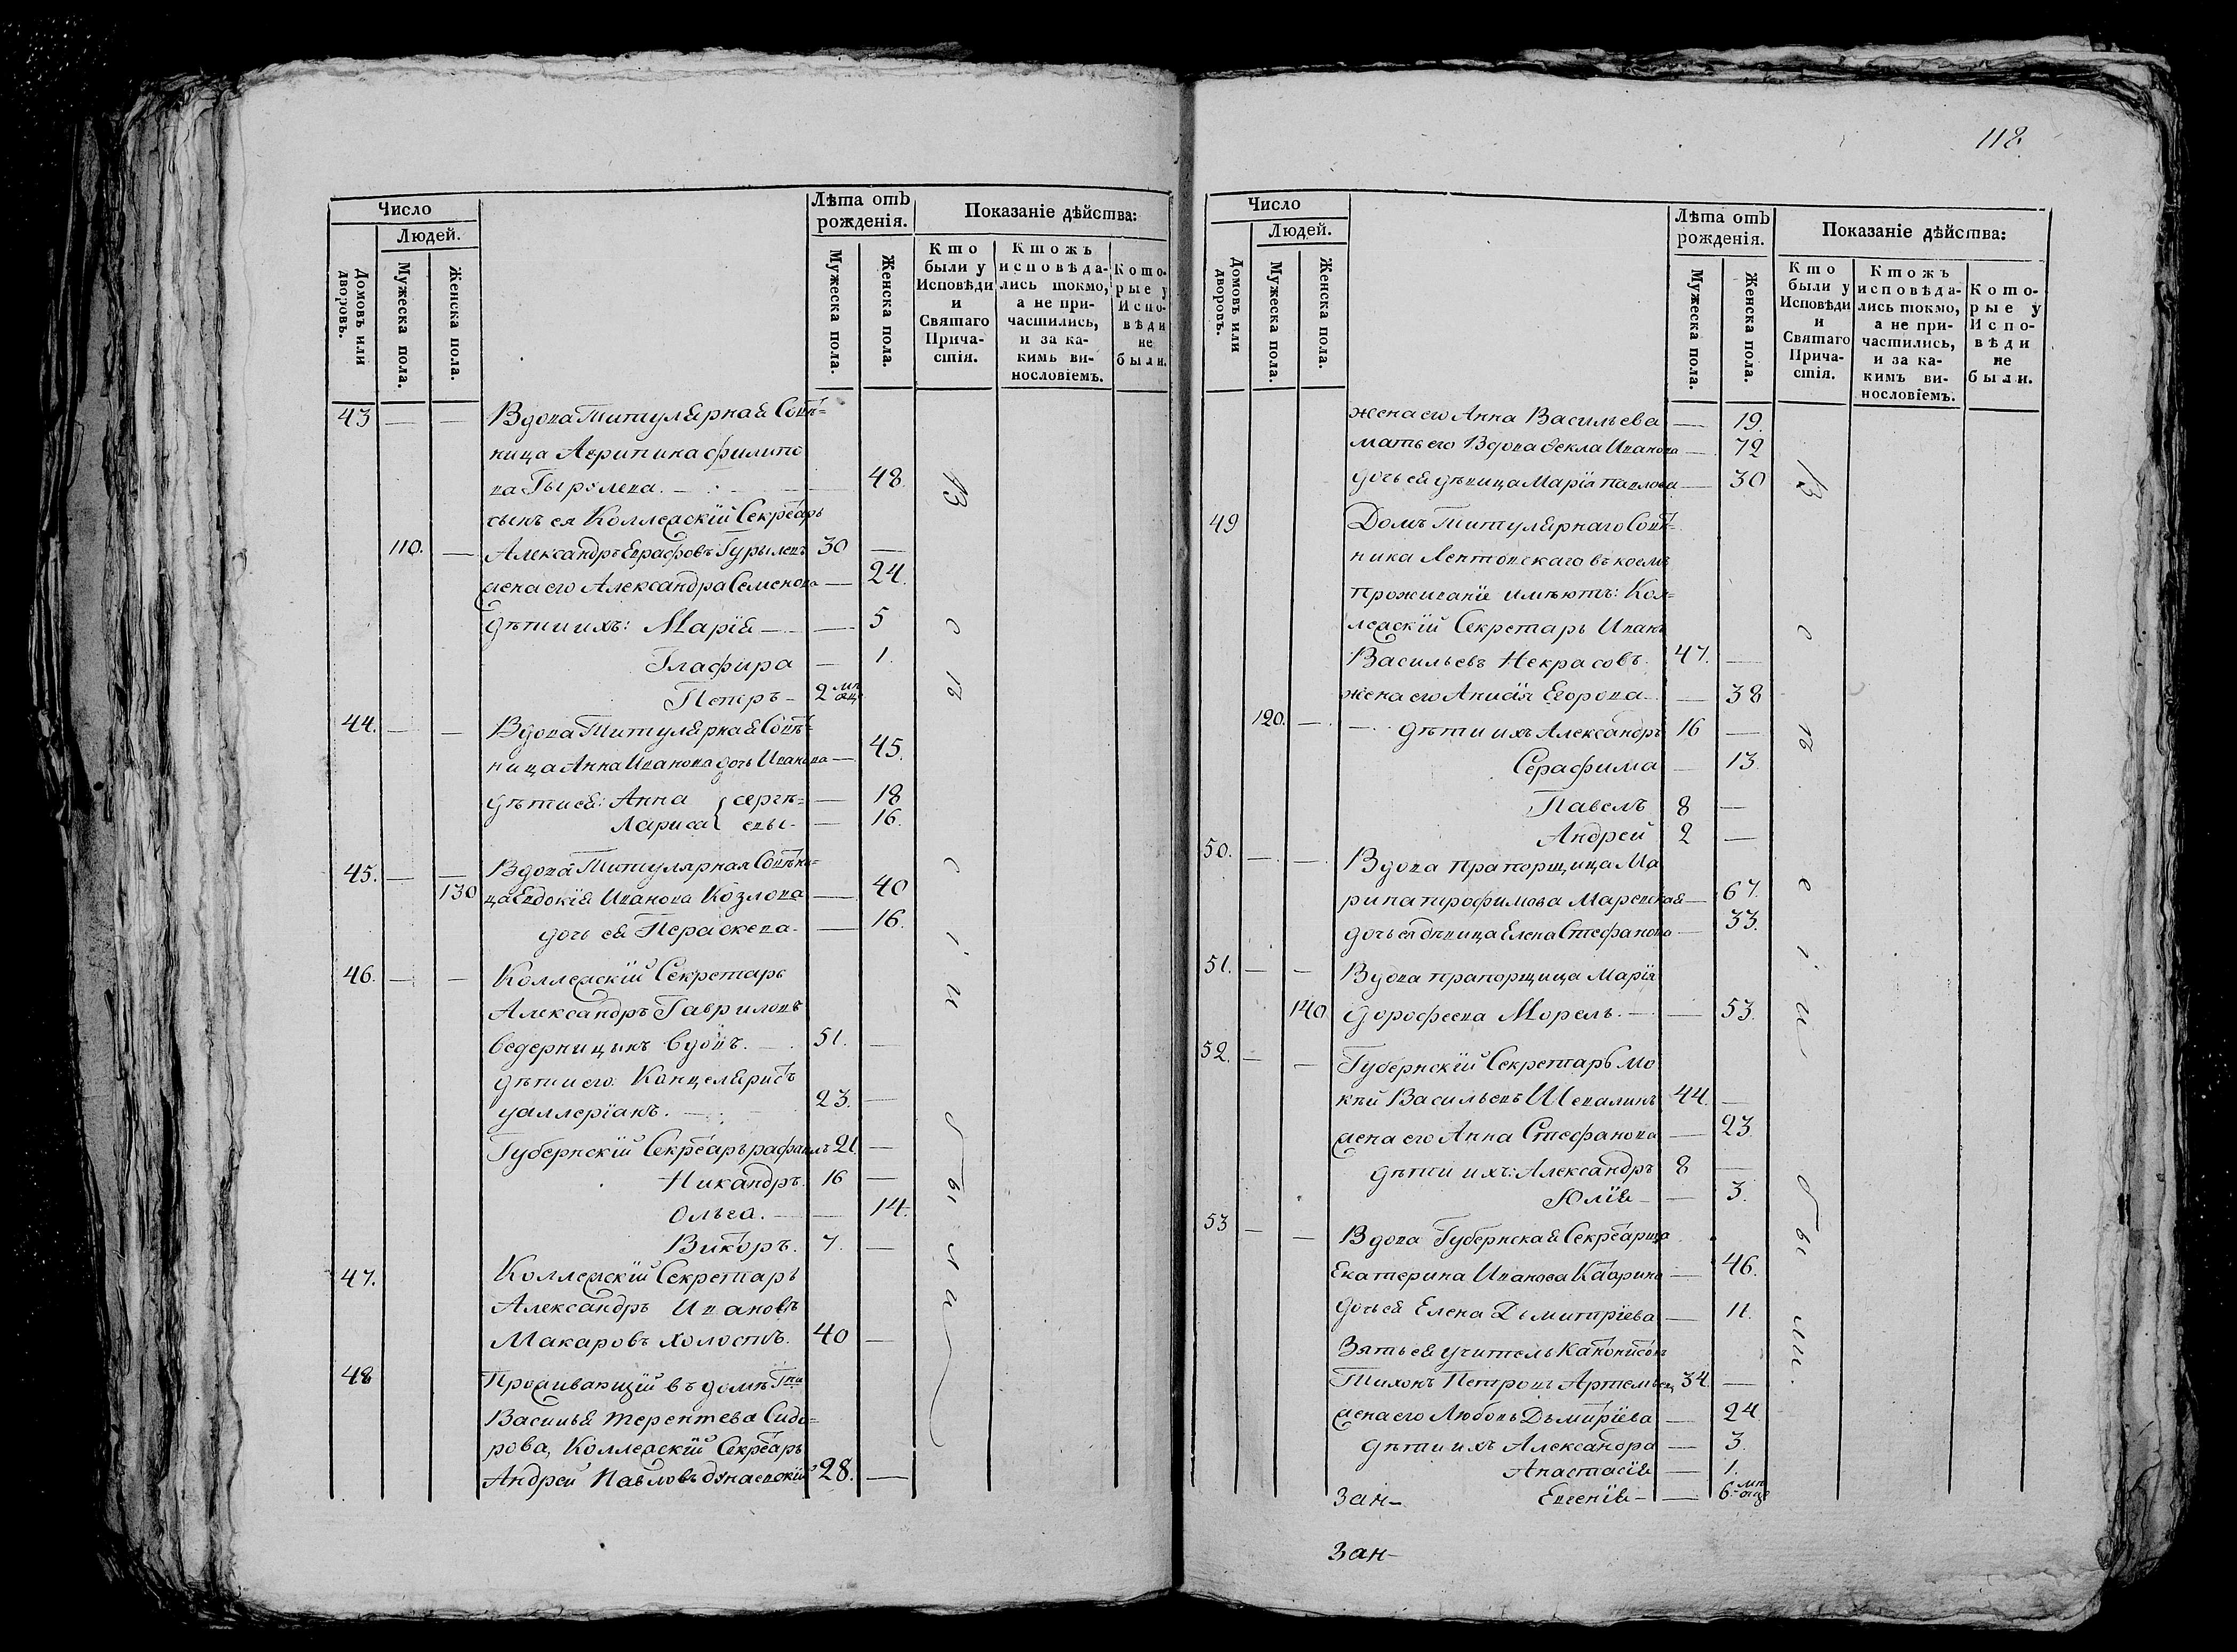 118.
Число
Людей.
Домовъ или дворовъ.
Мужеска пола.
Женска пола.
Лѣта отъ рожденія.
Мужеска пола.
Женска пола.
Показаніе дѣйства:
Кто были у Исповѣди и Святаго Причастія.
Ктожъ исповѣдались токмо, а не причастились, и за какимъ винословіемъ.
Которые у Исповѣди не были.
43 — — Вдова Титулярная Совѣт=
ница Агрипина Филипо
ва — 48.
сынъ ея Коллежскій Секретарь
110. — Александръ Евграфовъ Гурылевъ 30 —
жена его Александра Семенова — 24.
дѣти ихъ: Марія — 5
Глафира — 1.
Петръ — 2 мѣ
44. — — Вдова Титулярная Совѣт=
ница Анна Иванова дочь Иванова — 45.
дѣти ея: Анна } Сергѣ= — 18
Лариса } евы — 16.
45. — — Вдова Титулярная Совѣтни=
130 ца Евдокія Иванова Козлова — 40
дочь ея Параскева — 16.
46. — — Коллежскій Секретарь
Александръ Гавриловъ
Ведерницынъ вдовъ. 51. —
дѣти его: Канцеляристъ
уаллеріанъ. 23. —
Губернскій Секретарь рафаилъ 21. —
Никандръ. 16 —
Ольга. — 14.
Викторъ. 7. —
47. Коллежскій Секретарь
Александръ Ивановъ
Макаровъ холостъ. 40 —
48 Проживающій въ домѣ
Василья Терентева Сидо=
рова, Коллежскій Секретарь
Андрей Павловъ Дунаевскій 28. —
Въ
с
в
с
і
и
б
ы
л
и
Число
Людей.
Домовъ или дворовъ.
Мужеска пола.
Женска пола.
Лѣта отъ рожденія.
Мужеска пола.
Женска пола.
Показаніе дѣйства:
Кто были у Исповѣди и Святаго Причастія.
Ктожъ исповѣдались токмо, а не причастились, и за какимъ винословіемъ.
Которые у Исповѣди не были.
жена его Анна Васильева — 19.
мать его Вдова Фекла Иванова — 72
дочь ея дѣвица Марія Павлова — 30
49 Домъ Титулярнаго Совѣт=
ника въ коемъ
проживаніе имѣютъ: Кол=
лежскій Секретарь Иванъ
Васильевъ Некрасовъ. 47. —
жена его Егорова — 38
120. — дѣти ихъ Александръ 16 —
Серафима — 13.
Павелъ 8 —
Андрей 2 —
50. — — Вдова прапорщица Ма
рина трофимова — 67.
дочь ея дѣвица Елена Стефанова — 33.
51. — — Вдова прапорщица Марія
140. Дорофеева Морель. — 53.
52. — — Губернскій Секретарь Мо
кѣй Васильевъ Шевалинъ 44. —
жена его Анна Стефанова — 23.
дѣти ихъ: Александръ 8 —
Юлія — 3.
53 — — Вдова Губернская Секретарша
Екатерина Иванова — 46.
дочь ея Елена Дьмитріева — 11.
Зять ея учитель
Тихонъ Петровъ Артемьевъ 34. —
жена его Любовь Дьмитріева — 24
дѣти ихъ Александра — 3.
Анастасія — 1.
Зан- Евгенія — 6 мѣ
Зан-